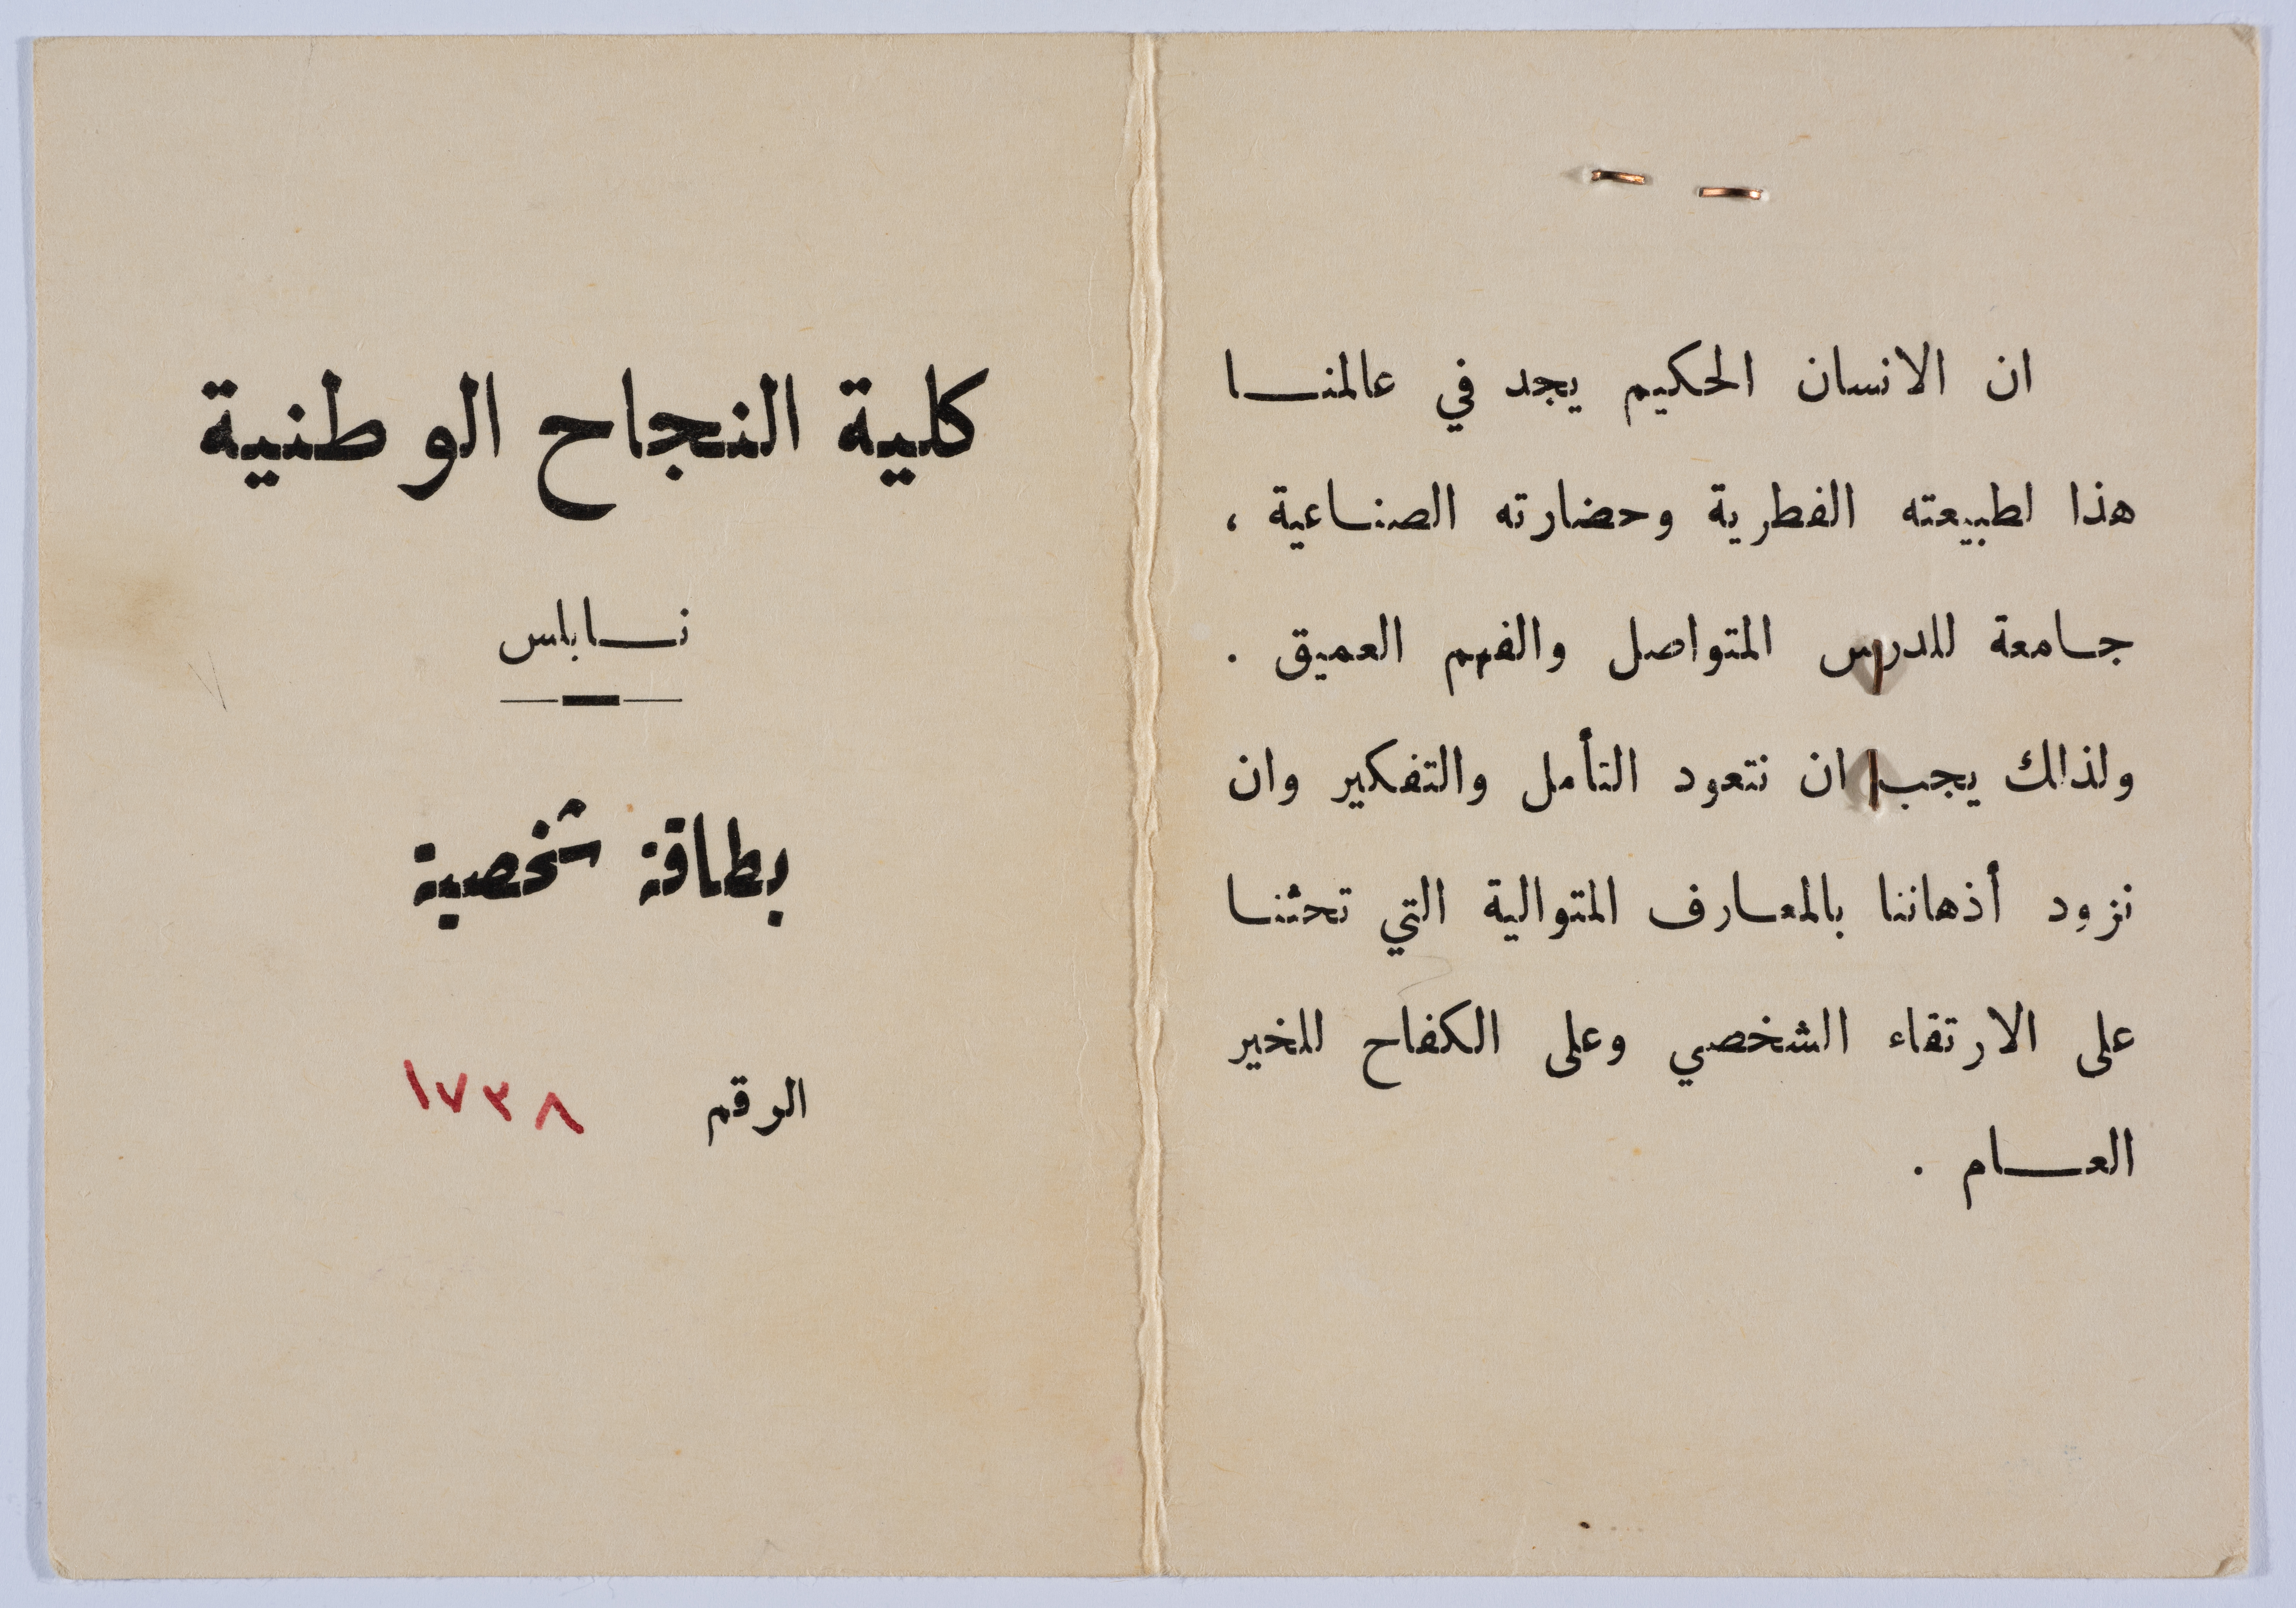 كلية النجاح الوطنية
نابلس
بطاقة شخصية
الرقم ١٧٣٨
ان الانسان الحكيم يجد في عالمنا
هذا لطبيعته الفطرية وحضارته الصناعية ،
جامعة للدرس المتواصل والفهم العميق .
ولذلك يجب ان نتعود التأمل والتفكير وان
نزود أذهاننا بالمعارف المتوالية التي تحثنا
على الارتقاء الشخصي وعلى الكفاح للخير
العام .